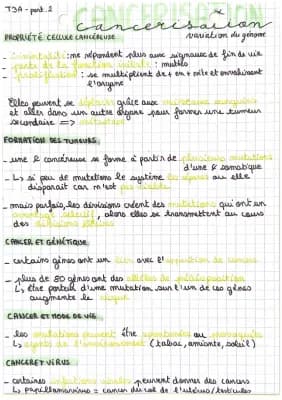 T3A - part. 2
CANCERISATION
cancerisation
variation du génome
PROPRIÉTÉ CELLULE CANCÉREUSE
- immortalité : ne répondent plus aux signaux de fin de vie
- perte de la fonction initiale : mutées
- prolifération : se multiplient de + en + vite et envahissent
l'organe
Elles peuvent se déplacer grâce aux vaisseaux sanguins
et aller dans un autre organe pour former une tumeur
secondaire => métastase
FORMATION DES TUMEURS
- une ȼ cancéreuse se forme à partir de plusieurs mutations
d'une ȼ somatique
↳ si peu de mutations le système la répare ou elle
disparaît car n'est pas viable
- mais parfois, les divisions créent des mutations qui ont un
avantage sélectif, alors elles se transmettent au cours
des divisions
CANCER ET GÉNÉTIQUE
- certains gènes ont un lien avec l'apparition de cancers
- plus de 80 gènes ont des allèles de prédisposition
↳ être porteur d'une mutation sur l'un de ces gènes
augmente le risque
CANCER ET MODE DE VIE
- les mutations peuvent être spontanées ou
↳ agents de l'environnement (tabac, amiante, soleil)
CANCER ET VIRUS
- certaines infections virales peuvent donner des cancers
↳ papillomavirus = cancer du col de l'utérus/testicules